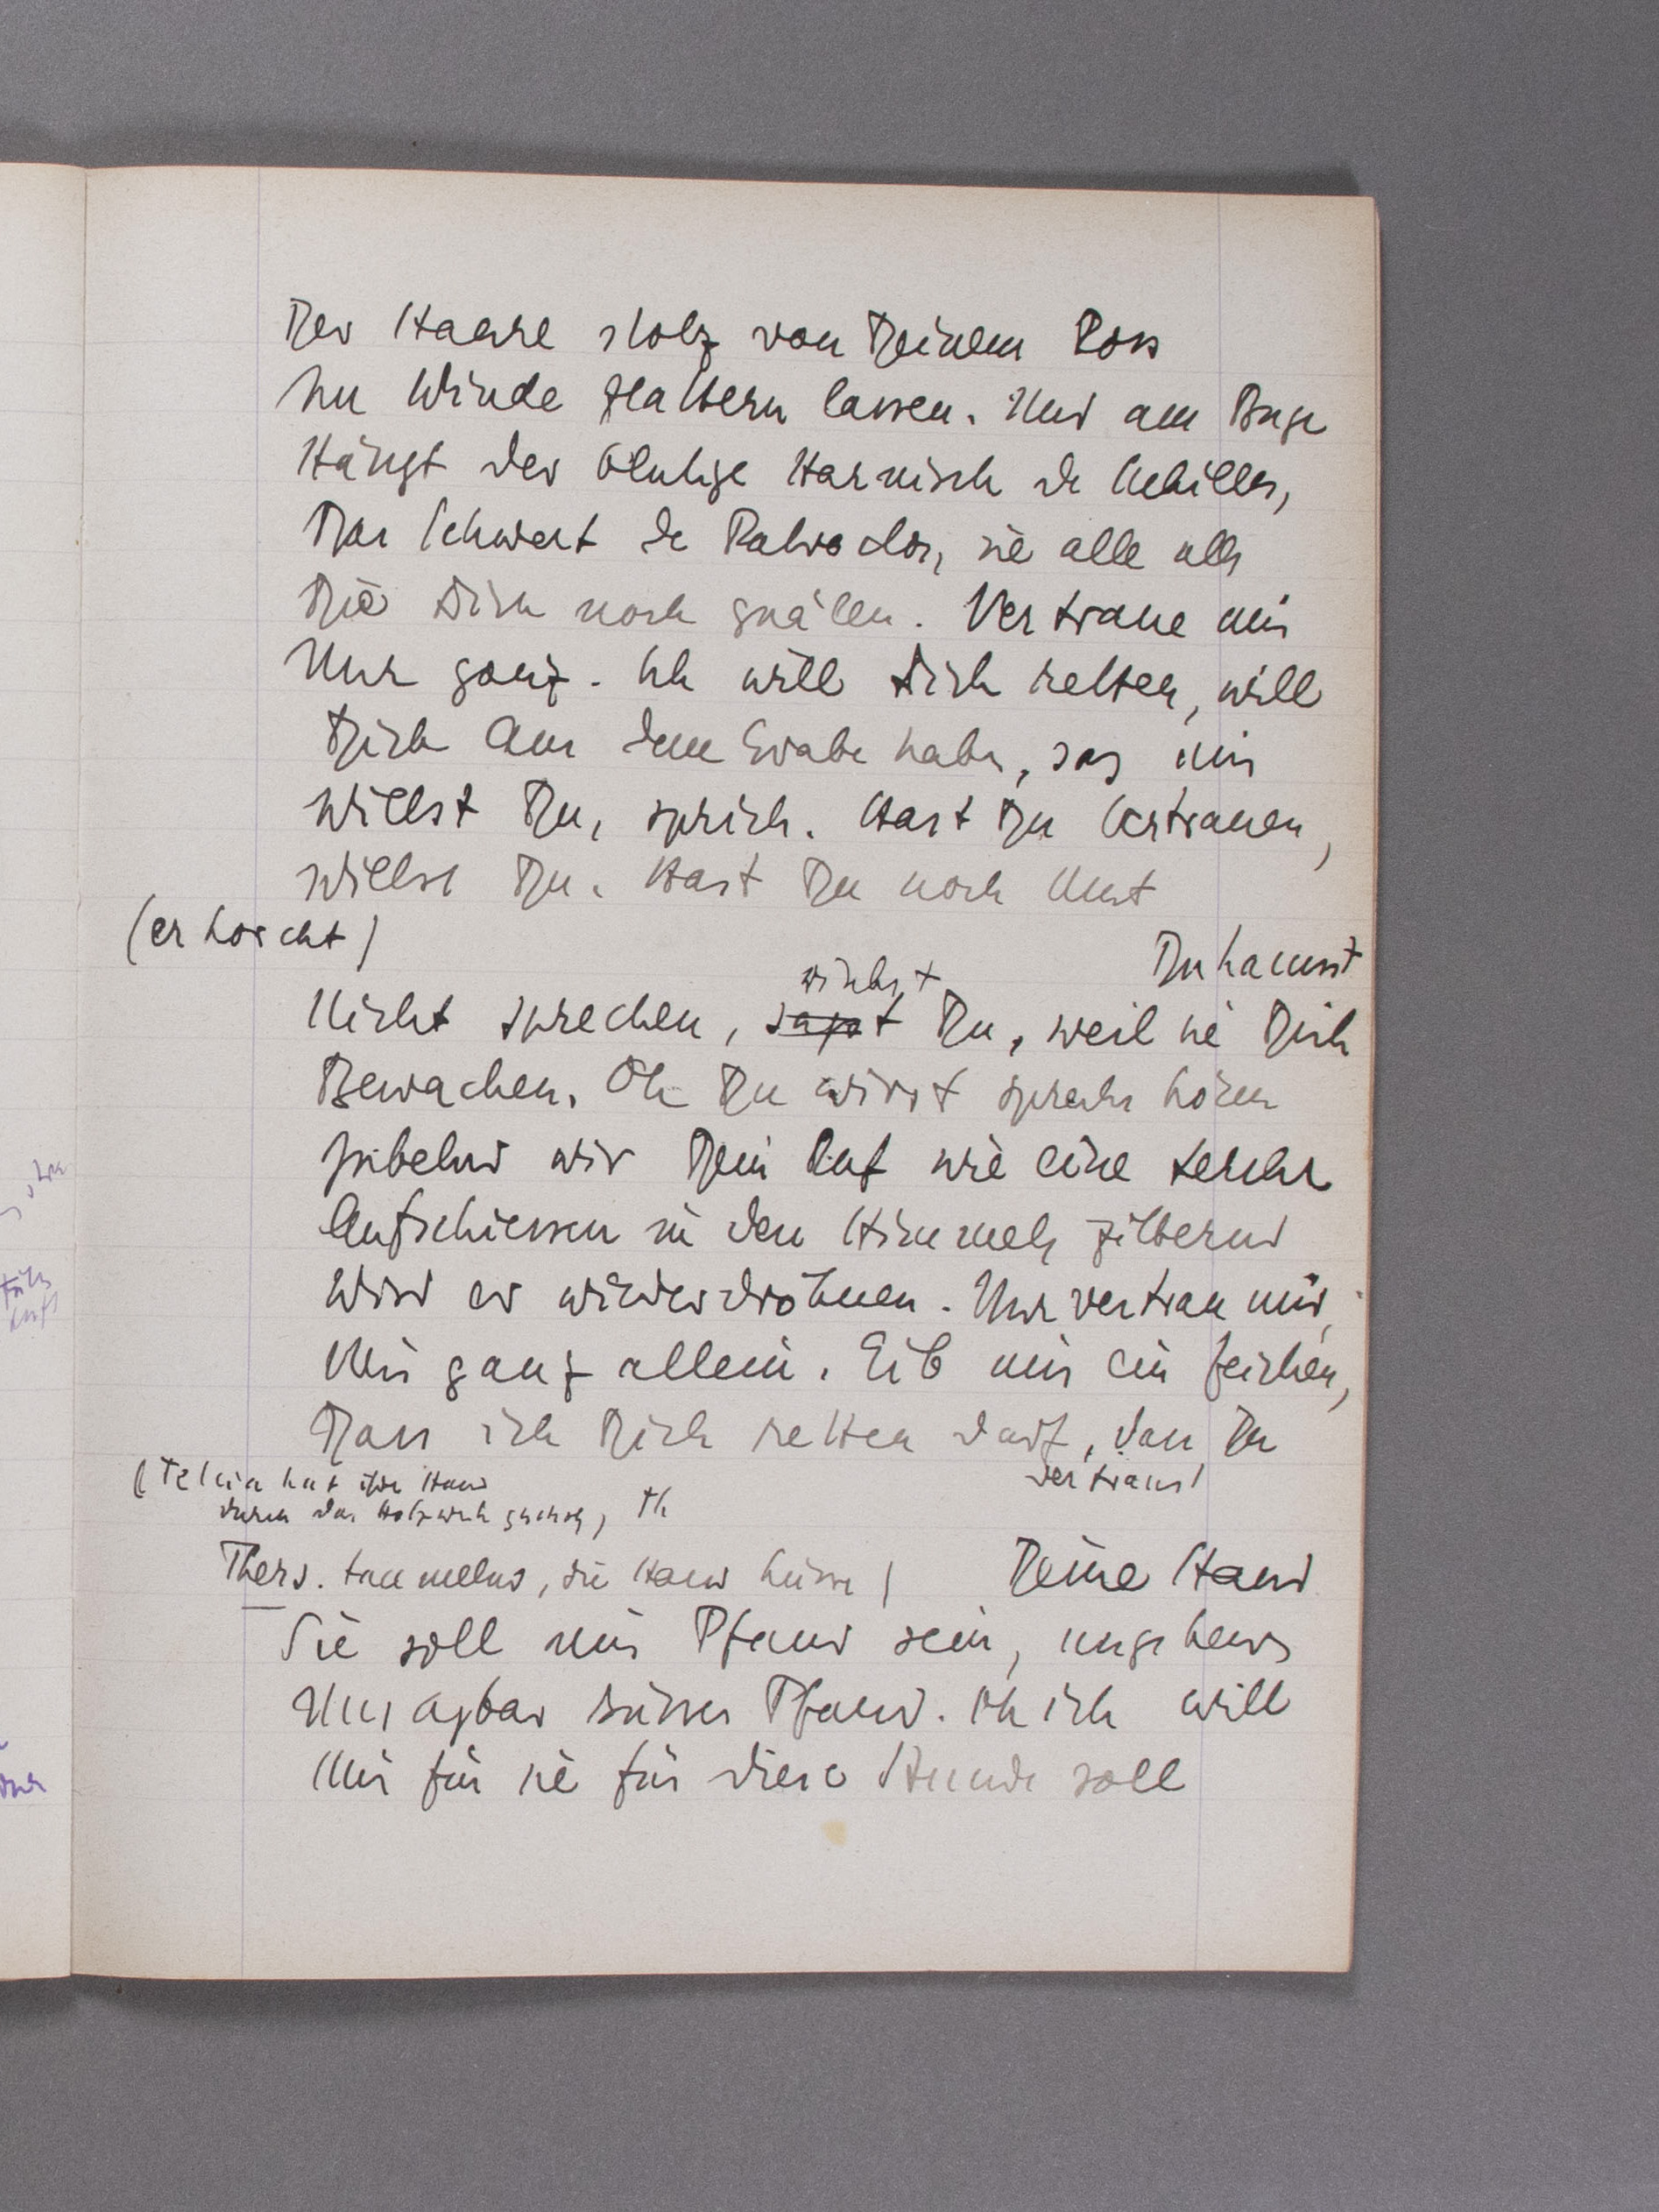 Der Haare stolz von Deinem Ross
Im Winde flattern lassen. Und am Buge
Hängt der blutige Harnisch des Achilles,
Das Schwert des Patroclos, sie alle alle
Die Dich noch quälen. Vertraue mir
Nur ganz. Ich will Dich retten, will
Dich aus dem Grabe haben, sag mir
willst Du, sprich. Hast Du Vertrauen,
willst Du. Hast Du noch Mut
(er horcht)
Du kannst
winkst
Nicht sprechen, sagst Du, weil sie Dich
Bewachen. Oh Du wirst sprechen hören
jubelnd wird Dein Ruf wie eine Lerche
Aufschiessen in den Himmel, zitternd
Wird er wiederdröhnen. Nur vertrau mir,
Mir ganz allein. Gib mir ein Zeichen,
Dass ich Dich retten darf, dass Du
vertraust
(Teleia hat ihre Hand
durch das Holzwerk Th
Thers. taumelnd, die Hand küssend) Deine Hand
Sie soll mir Pfand sein, ungeheures
Unsagbar süsses Pfand. Oh ich will
Mir für sie für diese Stunde soll